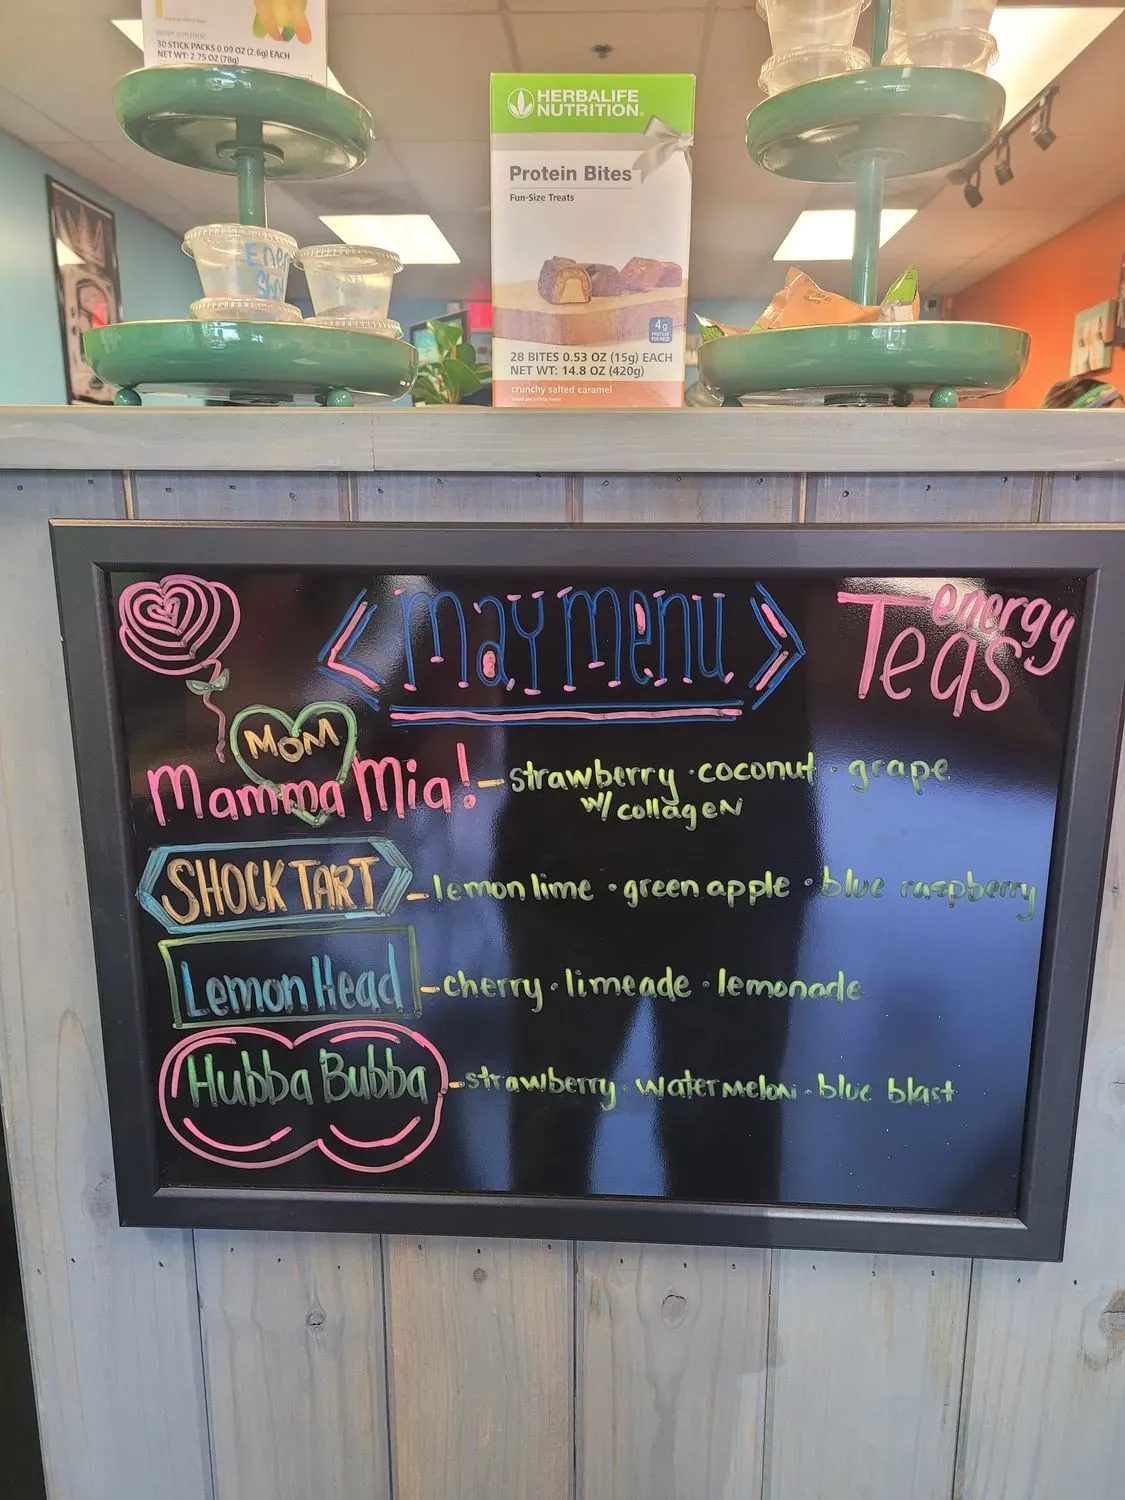 DIETARY SUPPLEMENT
30 STICK PACKS 0.09 OZ (2.6g) EACH
NET WT: 2.75 OZ (78g)
HERBALIFE
NUTRITION
Protein Bites
Fun-Size Treats
4g
28 BITES 0.53 OZ (15g) EACH
NET WT: 14.8 OZ (420g)
crunchy salted caramel
May Menu
energy
Teas
MOM
Mamma Mia! - strawberry · coconut · grape
w/ collagen
SHOCK TART - lemon lime · green apple · blue raspberry
Lemon Head - cherry · limeade · lemonade
Hubba Bubba - strawberry · watermelon · blue blast